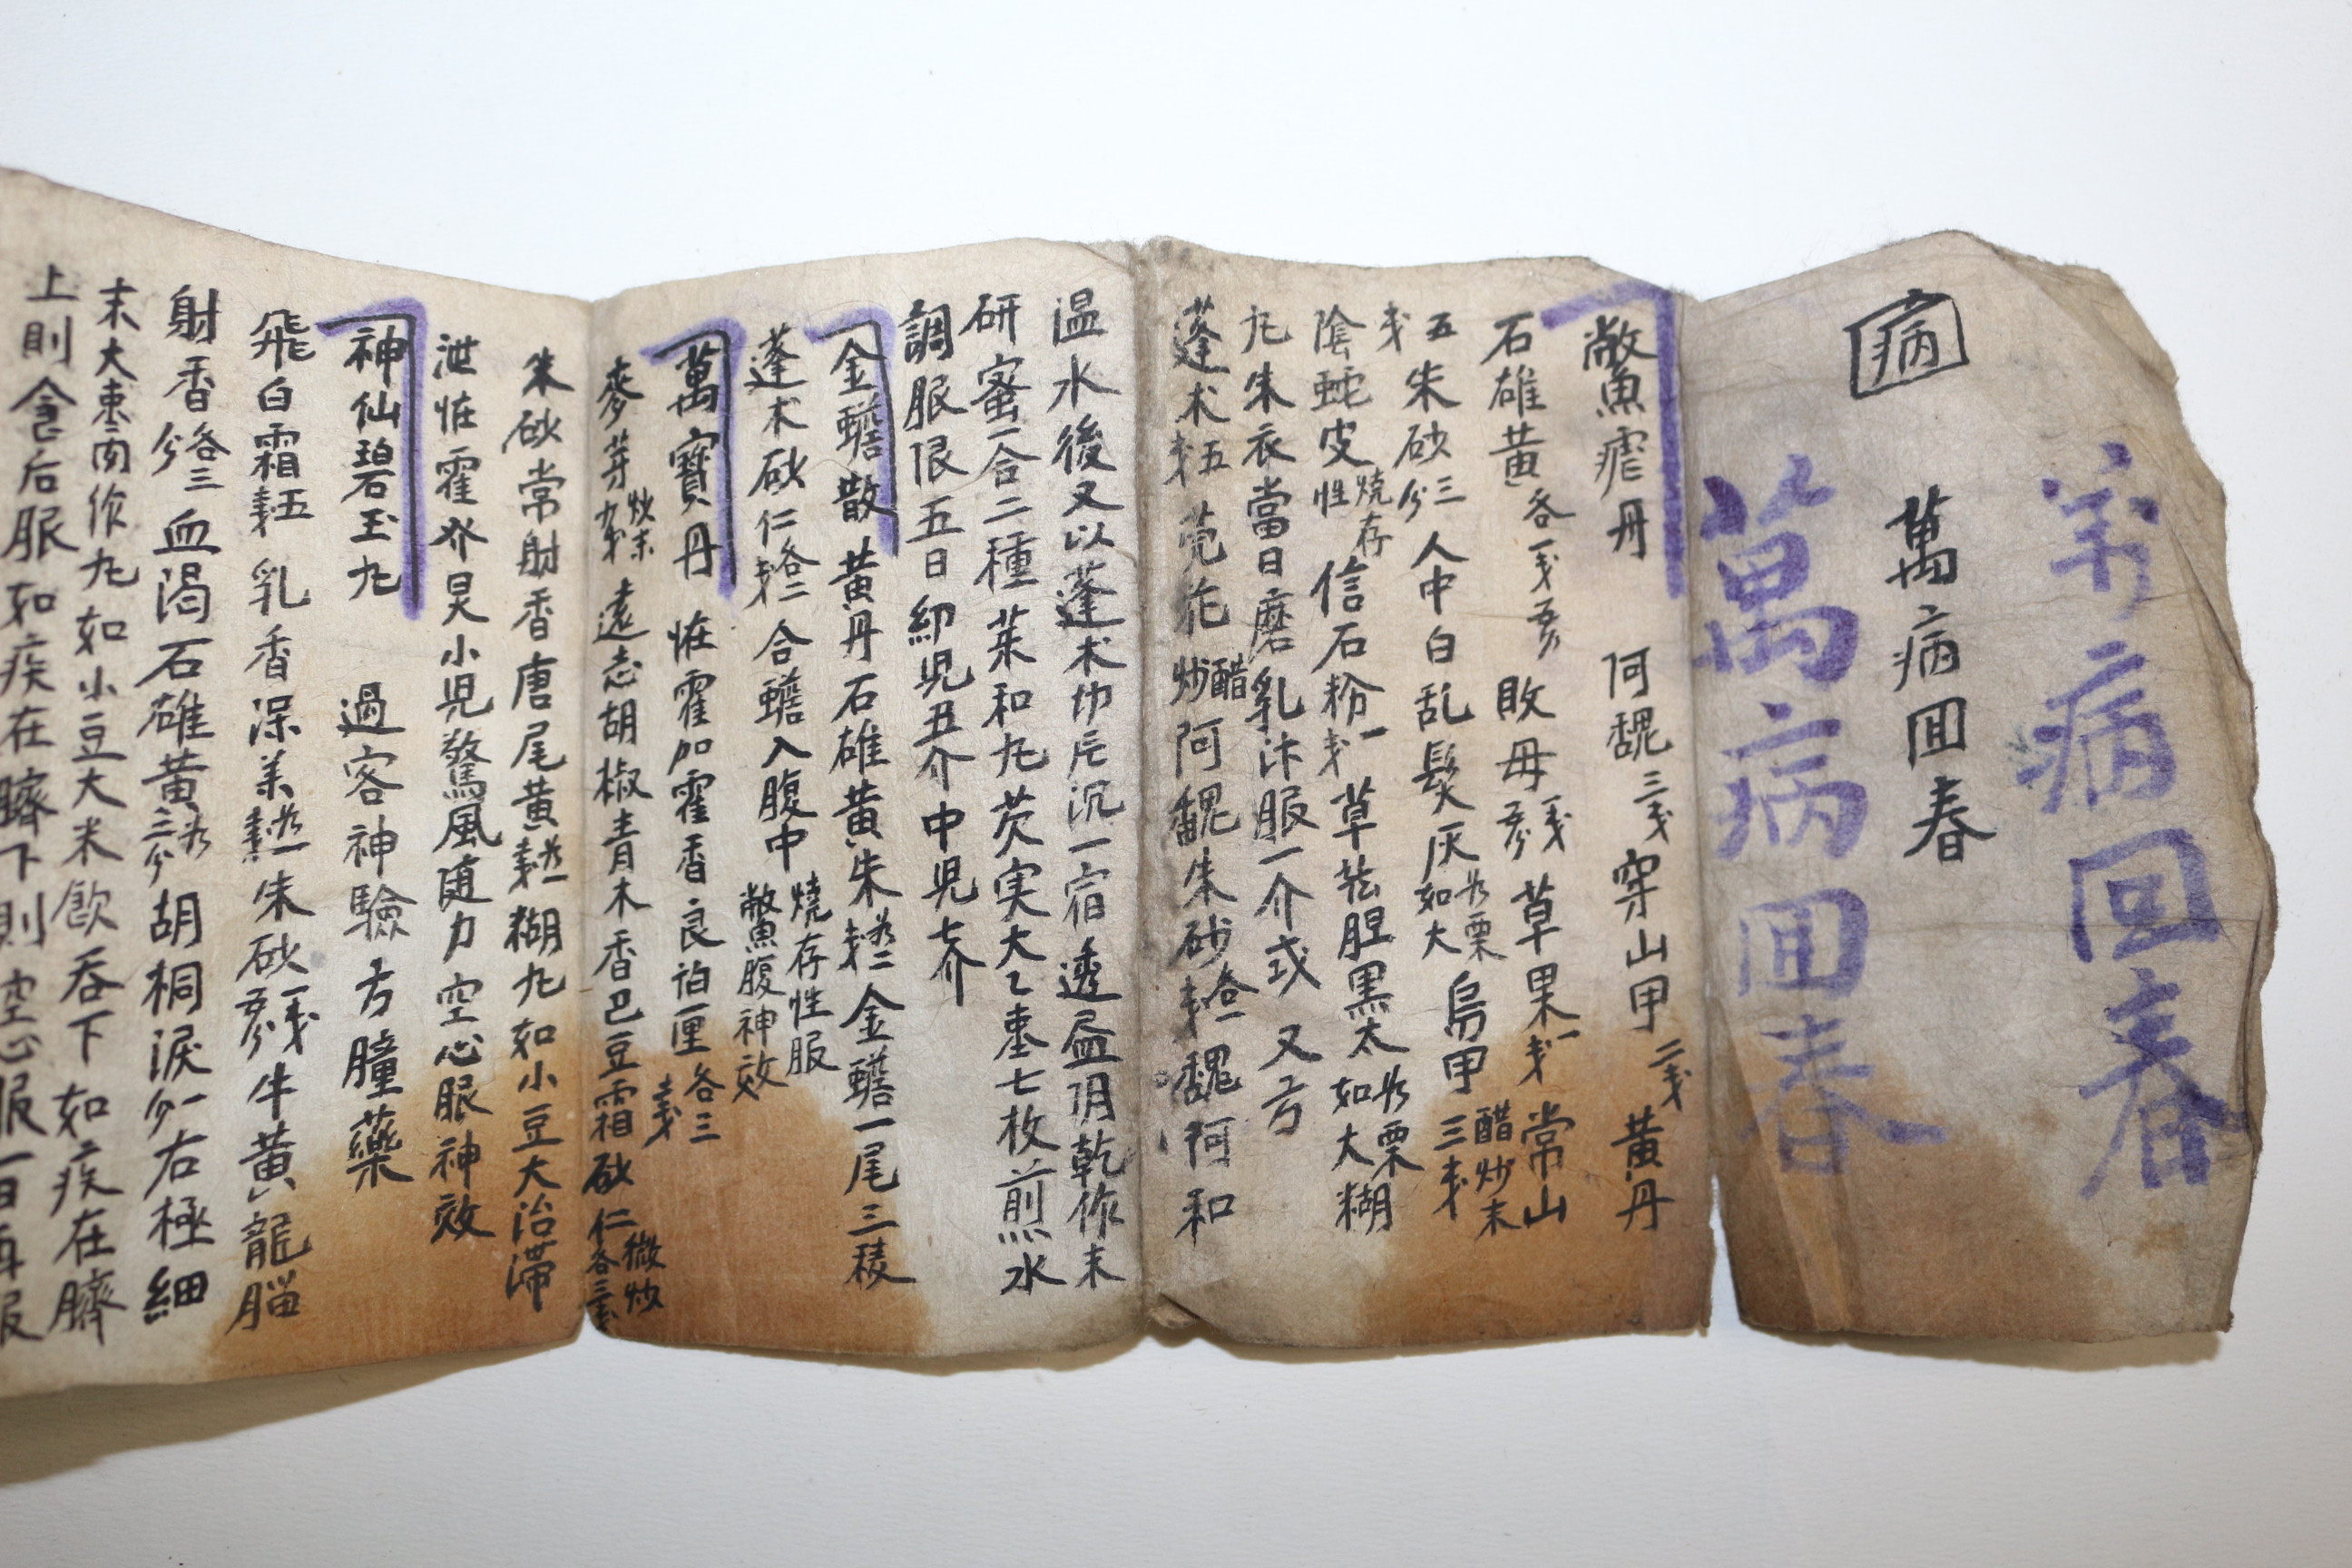 万病回春
病
萬病回春
萬病回春
鱉瘧丹 阿魏三戋 穿山甲二戋 黄丹
石雄黄各一戋五分 敗母一戋五分 草果一戋 常山醋炒末
五朱砂三分 人中白 乱髮灰如大栗 烏甲三戋
戋 陰蛇皮燒存性 信石粉一戋 草 胆 黒太如大栗 糊
丸朱衣 當日磨乳汁服一介 或 又方
蓬术五戋 芫花醋炒 阿魏 朱砂各一戋 魏阿和
温水後 又以蓬术切片沉一宿透 陰乾作末
研蜜合二種 菜和丸芡実大 乙 枣七枚煎水
調服限五日 幼児丑介 中児七介
金蟾散 黄丹 石雄黄 朱各二戋 金蟾一尾 三稜
蓬术 砂仁各二戋 合蟾入腹中 燒存性服鱉腹神效
萬寶丹 恠霍加霍香良 一厘各三戋
麥芽炒末九戋 遠志 胡椒 青木香 巴豆霜 砂仁微炒各三戋
朱砂 常射香 唐尾黄各一戋 糊丸如小豆大 治滯
泄恠霍 小児驚風 随力空心服神效
神仙碧玉丸 過客神驗方 腫藥
飛白霜五戋 乳香 深美各一戋 朱砂一戋五分 牛黄 龍脳
射香各三分 血渴 石雄黄各三分 胡桐淚一分 右極細
末大枣肉作丸如小豆大 米飮呑下 如疾在臍
上則食后服 如疾在臍下則空心服 一日再服